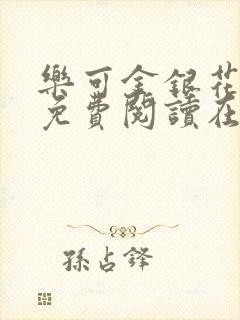 樂可金銀花
免費閱讀在
孫占鋒